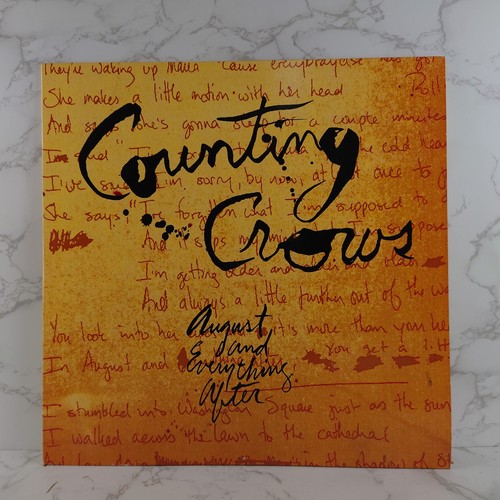 They're waking up Maria 'cause everybody else has got
She makes a little motion with her head
And says she's gonna sleep for a couple minutes
Counting
I've said I'm sorry, by now, at least once to
She says, "I've forgotten what I'm supposed to
And
Crows
I'm getting older and
And always a little further out of the
August
You look into her it's more than your
and
In August and
Everything
You get a
After
I stumbled into Washington Square just as the sun
I walked across the lawn to the cathedral
in the shadow of